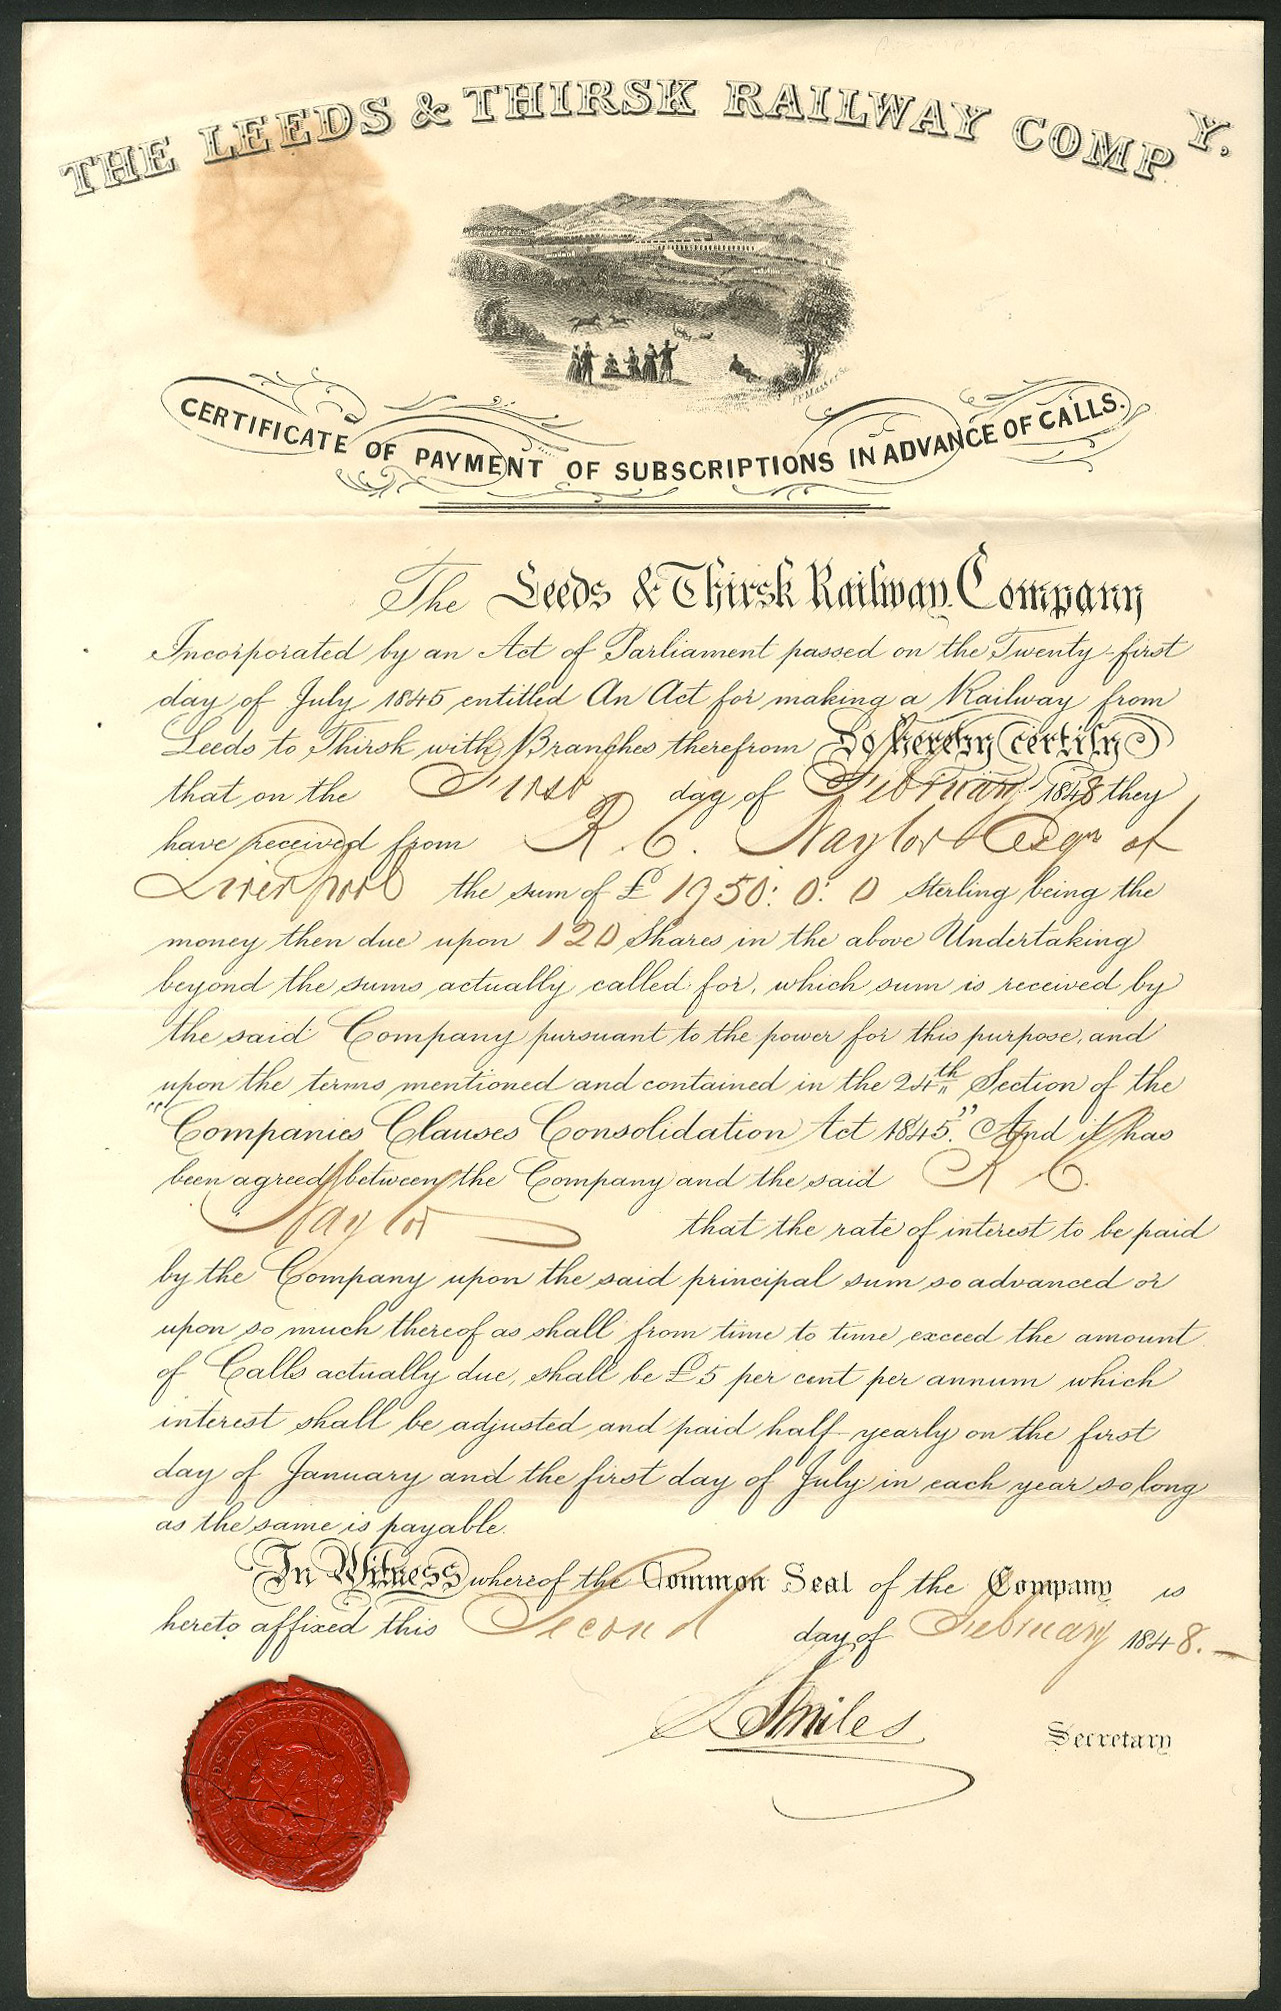 THE LEEDS & THIRSK RAILWAY COMPY.
CERTIFICATE OF PAYMENT OF SUBSCRIPTIONS IN ADVANCE OF CALLS.
The Leeds & Thirsk Railway Company
Incorporated by an Act of Parliament passed on the Twenty-first
day of July 1845 entitled An Act for making a Railway from
Leeds to Thirsk with Branches therefrom Do hereby certify
that on the First day of February 1848 they
have received from R. C. Naylor Esqr of
Liverpool the sum of £ 1950: 0: 0 Sterling being the
money then due upon 120 Shares in the above Undertaking
beyond the sums actually called for, which sum is received by
the said Company pursuant to the power for this purpose, and
upon the terms mentioned and contained in the 24th Section of the
"Companies Clauses Consolidation Act 1845." And it has
been agreed between the Company and the said R C.
Naylor that the rate of interest to be paid
by the Company upon the said principal sum so advanced or
upon so much thereof as shall from time to time exceed the amount
of Calls actually due, shall be £5 per cent per annum which
interest shall be adjusted and paid half-yearly on the first
day of January and the first day of July in each year so long
as the same is payable.
In Witness whereof the Common Seal of the Company is
hereto affixed this Second day of February 1848.
S Smiles Secretary
THE LEEDS AND THIRSK RAILWAY